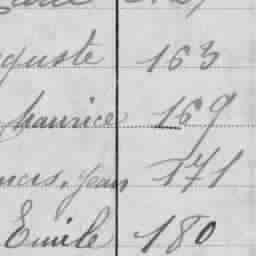 guste 163
Maurice 169
Jean 171
Emile 180